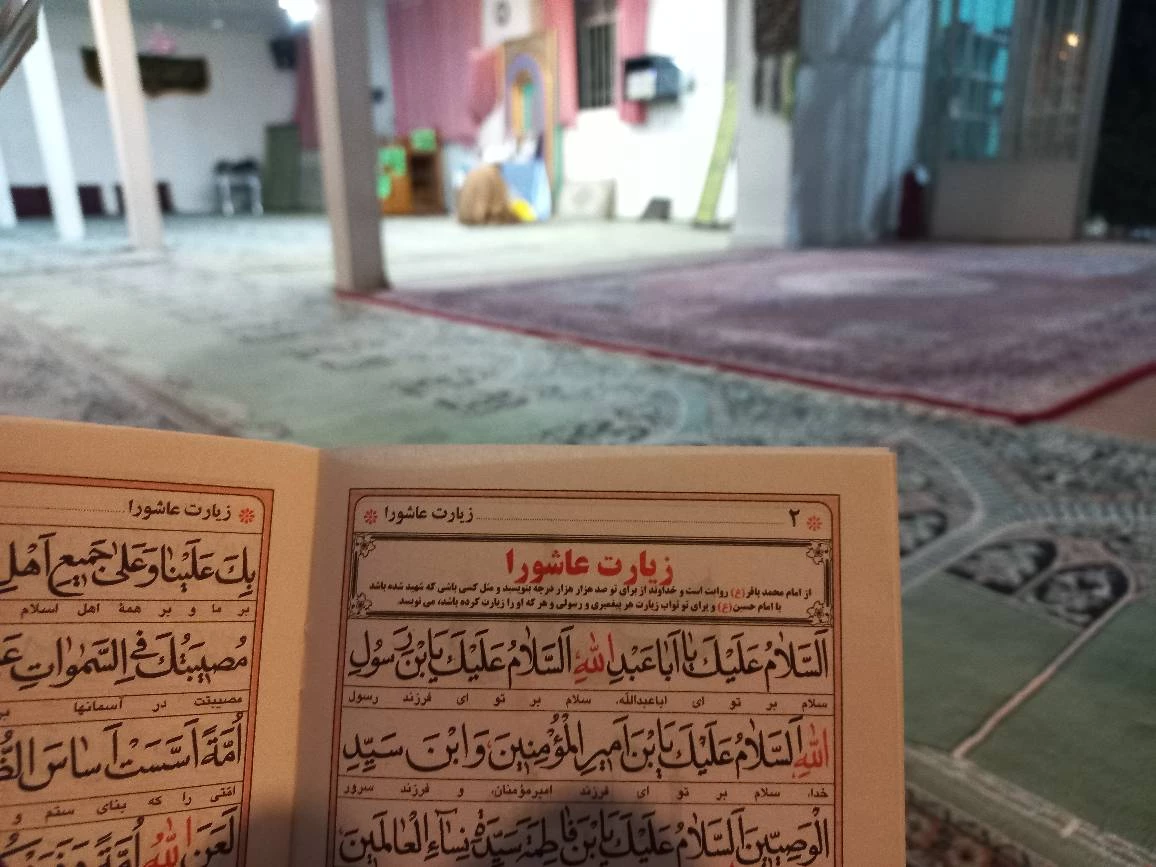 ۲ زیارت عاشورا
زیارت عاشورا
از امام محمد باقر (ع) روایت است و خداوند از برای تو صد هزار هزار درجه بنویسد و مثل کسی باشی که شهید شده باشد
با امام حسین (ع) و برای تو ثواب زیارت هر پیغمبری و رسولی و هر که او را زیارت کرده باشد، می نویسد.
اَلسَّلامُ عَلَيْكَ يا اَباعَبْدِ اللهِ اَلسَّلامُ عَلَيْكَ يَابْنَ رَسُولِ
سلام بر تو ای اباعبدالله، سلام بر تو ای فرزند رسول
اللهِ اَلسَّلامُ عَلَيْكَ يَابْنَ اَميرِ الْمُؤْمِنينَ وَ ابْنَ سَيِّدِ
خدا، سلام بر تو ای فرزند امیرمؤمنان، و فرزند سرور
الْوَصِيّينَ اَلسَّلامُ عَلَيْكَ يَابْنَ فاطِمَةَ سَيِّدَةِ نِساۤءِ الْعالَمينَ
زیارت عاشورا
بِكَ عَلَيْنا وَ عَلى جَميعِ اَهْلِ
بر ما و بر همهٔ اهل اسلام
مُصيبَتُكَ فِى السَّمٰواتِ
مصیبتت در آسمانها بر
اُمَّةً اَسَّسَتْ اَساسَ
امّتی را که بنای ستم و
لَعَنَ اللهُ اُمَّةً